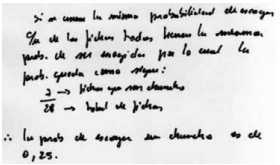 si se asume la misma probabilidad de escoger
c/u de las fichas todas tienen la misma
prob. de ser escogidas por lo cual la
prob. queda como sigue:
7 → fichas que son chuecho
28 → total de fichas
∴ la prob de escoger un chuecho es de
0,25.